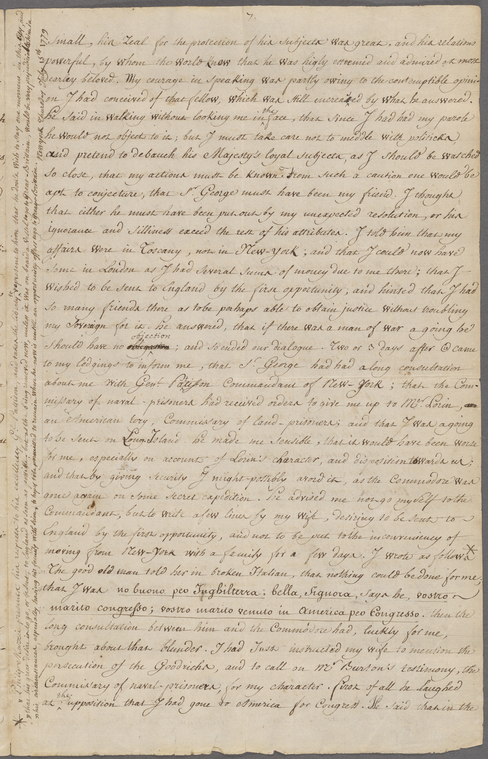 7.
Small, his Zeal for the protection of his subjects was great, and his relations
powerful, by whom the world know that he was higly esteemed and admired & most
dearley beloved. My courage in speaking was partly owing to the contemptible opini-
on I had conceived of that fellow, which was still encreased by what he answered.
He Said in walking without looking me in the face, that since I had had my parole
he would not object to it; but I must take care not to middle with politicks
and pretend to debauch his Majesty's loyal Subjects, as I Should be watched
So close, that my actions must be known. From such a caution one would be
apt to conjecture, that Sr. George must have been my friend. I thought
that either he must have been put out by my unexpected resolution, or his
ignorance and Silliness exceed the rest of his attributes. I told him that my
affairs were in Toscany, not in New-York; and that I could now have
some in London as I had Several Sums of money due to me there; that I
wished to be sent to England by the first opportunity; and hinted that I had
so many friends there as to be perhaps able to obtain justice without troubling
my Sovereign for it. he answered, that if there was a man of war a going he
objection
should have no; and so ended our dialogue. Two or 3 days after came
to my lodgings to inform me, that Sr. George had had a long consultation
about me with Genl. Pattison Commandant of New-York; that the Com-
missary of naval-prisoners had received orders to give me up to Mr. Lorin,
an American tory, Commissary of land-prisoners; and that I was a going
to be Sent on Long Island. he made me Sensible, that it would have been worse
for me, especially on account of Lorin's character, and disposition towards us;
and that by giving Security I might possibly avoid it, as the Commodore was
gone again on Some Secret expedition. He advised me not go my self to the
Commandant, but to write a few lines by my wife, desiring to be Sent to
England by the first opportunity, and not to be put to the inconveniency of
moving from New-York with a family for a few days. I wrote as follows *
The good old man told her in broken Italian, that nothing could be done for me,
that I was no buono per Inghilterra: bella, Signora, says he, vostro
marito congresso; vostro marito venuto in America per Congresso. then the
long consultation between him and the Commodore had, luckily for me,
brought about that blunder. I had Just instructed my wife to mention the
persecution of the Goodricks, and to call on Mr. Bourson's testimony, the
Commissary of naval-prisoners, for my character. First of all he laughed
at the Supposition that I had gone to America for Congress. He said that in the